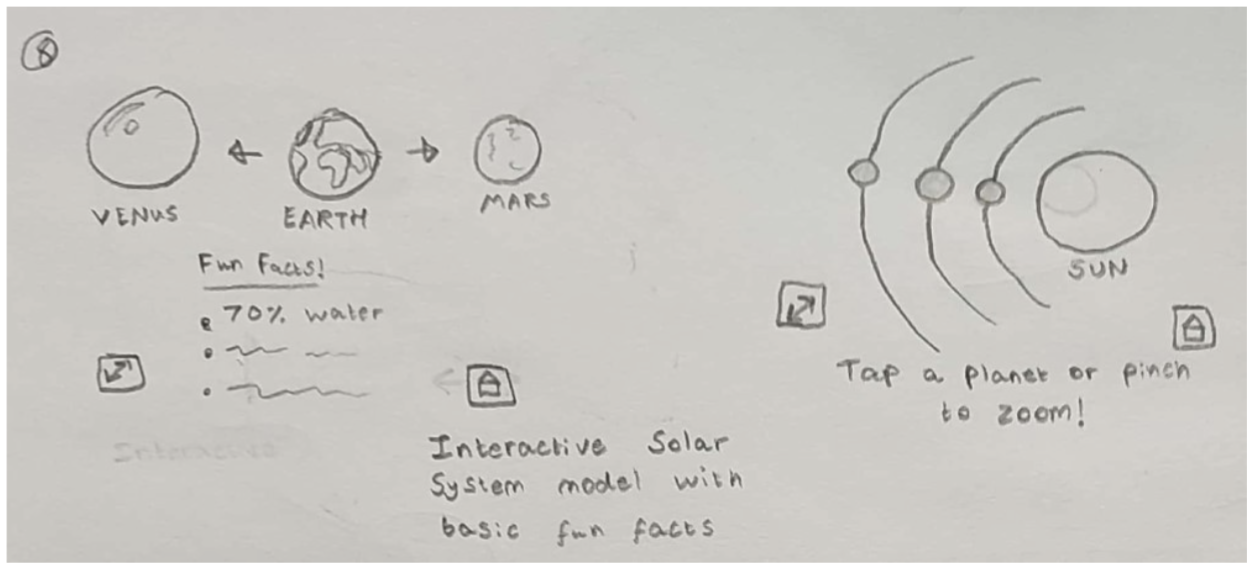 VENUS
EARTH
MARS
Fun Facts!
70% water
Interactive
Interactive Solar
System model with
basic fun facts
SUN
Tap a planet or pinch
to zoom!